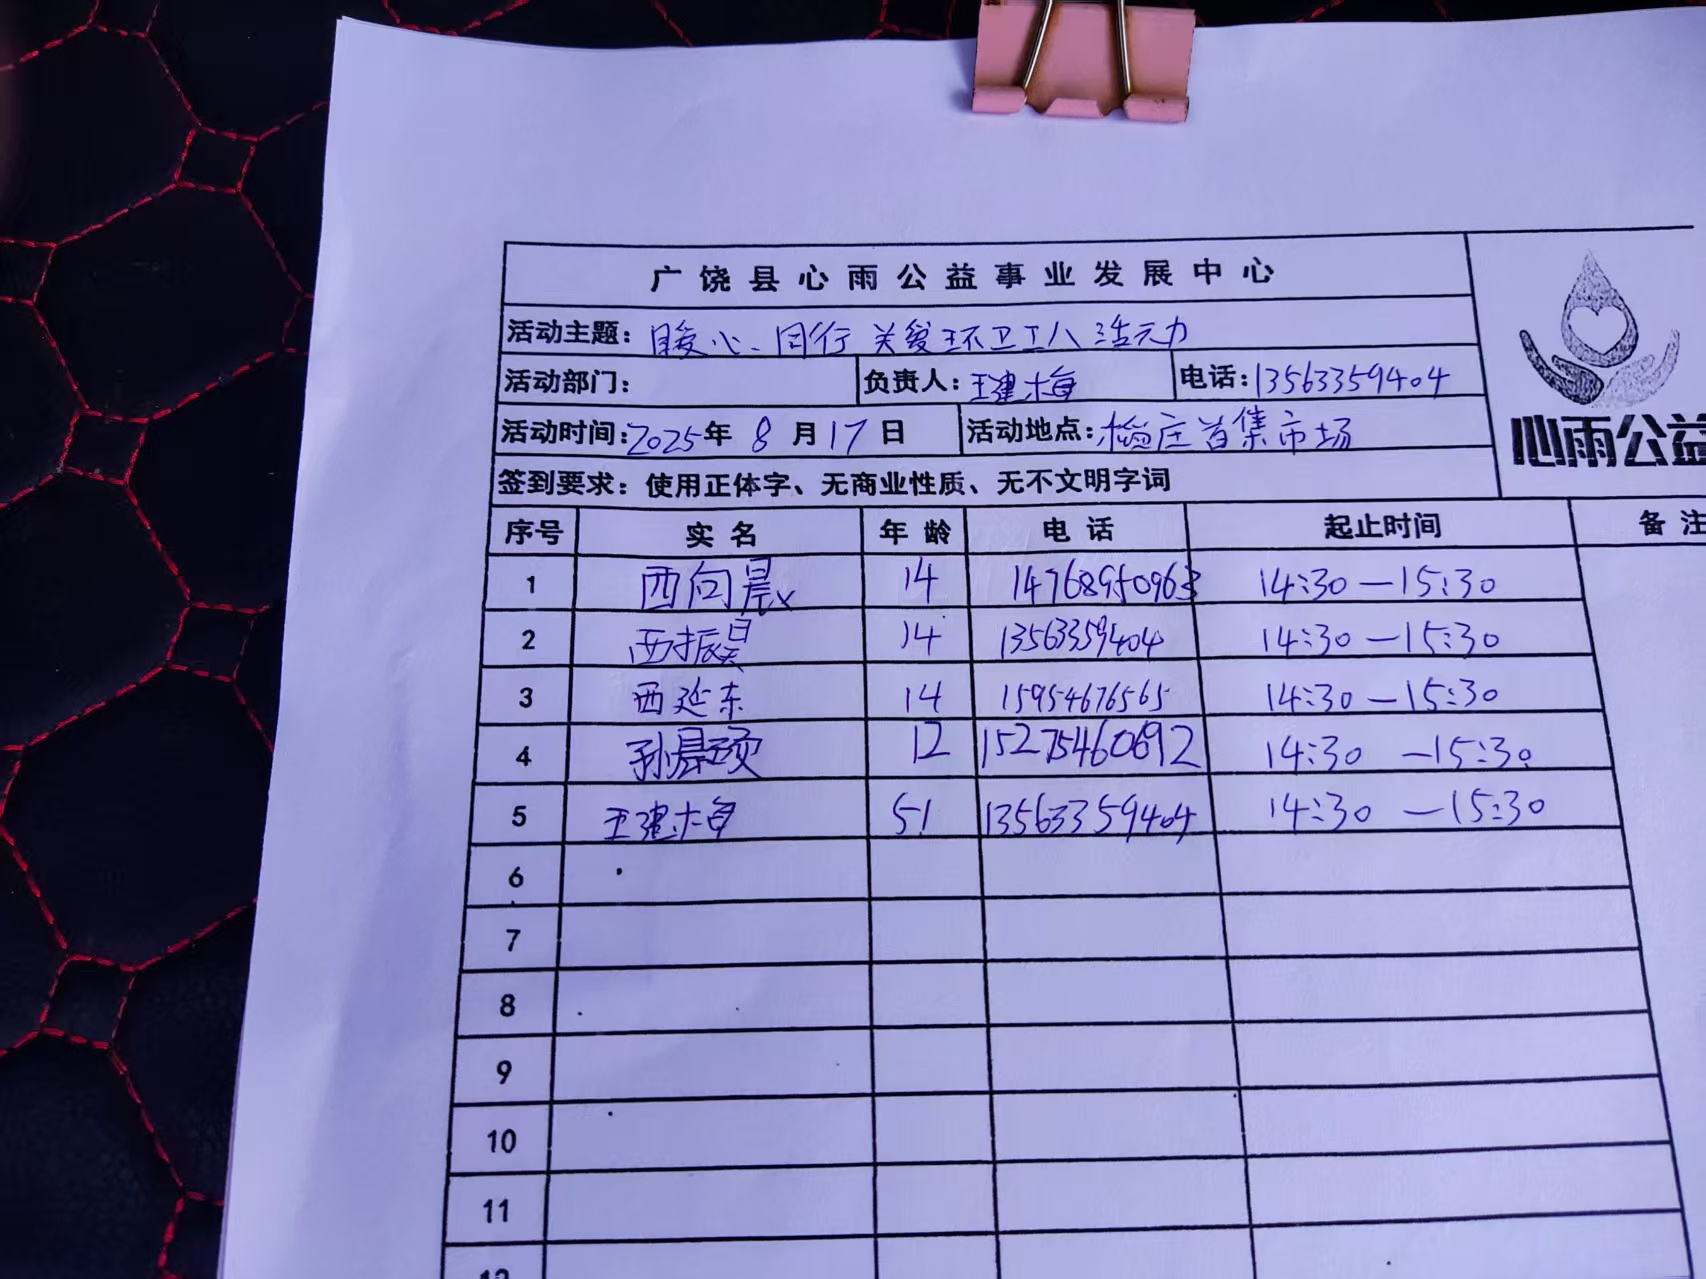 广饶县心雨公益事业发展中心
活动主题：暖心同行 关爱环卫工人活动
活动部门：
负责人：王建梅
电话：13563359404
活动时间：2025年8月17日
活动地点：庄首集市场
心雨公益
签到要求：使用正体字、无商业性质、无不文明字词
序号 实名 年龄 电话 起止时间 备注
1 西向晨 14 14768950963 14:30—15:30
2 西振昊 14 13563359404 14:30—15:30
3 西延东 14 15954676565 14:30—15:30
4 孙晨 12 15275460692 14:30—15:30
5 王建梅 51 13563359404 14:30—15:30
6
7
8
9
10
11
12